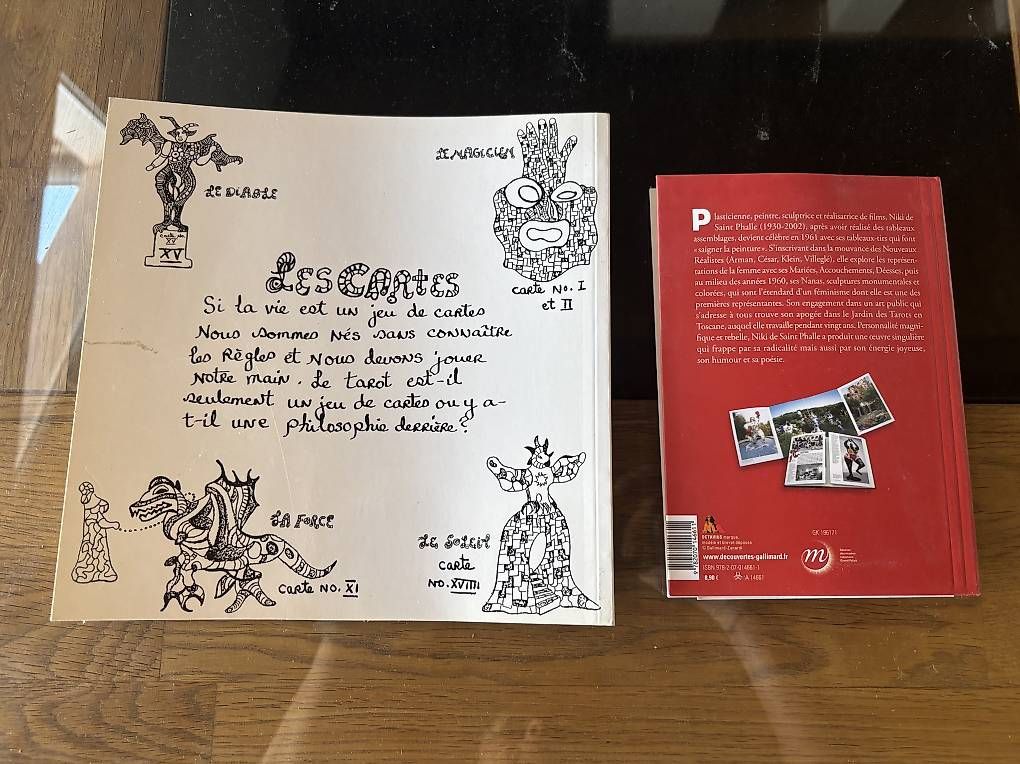 LE DIABLE
Carte No
XV
XV
LE MAGICIEN
CARTE No. I
et II
LES CARTES
Si la vie est un jeu de cartes
Nous sommes nés sans connaître
les Règles et nous devons jouer
notre main. Le tarot est-il
seulement un jeu de cartes ou y a-
t-il une philosophie derrière?
LA FORCE
CARTE NO. XI
LE SOLEIL
CARTE
NO. XVIIII
Plasticienne, peintre, sculptrice et réalisatrice de films, Niki de
Saint Phalle (1930-2002), après avoir réalisé des tableaux
assemblages, devient célèbre en 1961 avec ses tableaux-tirs qui font
« saigner la peinture ». S'inscrivant dans la mouvance des Nouveaux
Réalistes (Arman, César, Klein, Villeglé), elle explore les représen-
tations de la femme avec ses Mariées, Accouchements, Déesses, puis
au milieu des années 1960, ses Nanas, sculptures monumentales et
colorées, qui sont l'étendard d'un féminisme dont elle est une des
premières représentantes. Son engagement dans un art public qui
s'adresse à tous trouve son apogée dans le Jardin des Tarots en
Toscane, auquel elle travaille pendant vingt ans. Personnalité magni-
fique et rebelle, Niki de Saint Phalle a produit une œuvre singulière
qui frappe par sa radicalité mais aussi par son énergie joyeuse,
son humour et sa poésie.
OCTAVIUS marque,
modèle et brevet déposés
© Gallimard-Zanardi
www.decouvertes-gallimard.fr
ISBN 978-2-07-014661-1
8,90 € A 14661
GK 196171
m